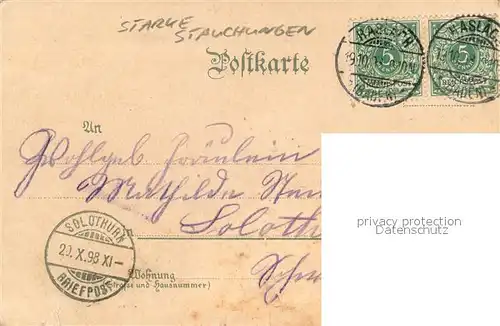 STARKE
STAUCHUNGEN
Postkarte
HASLACH
5
5
HASLAC
(BADEN)
An
Wohlgeb Fräulein
Mathilde
Soloth
privacy protection
Datenschutz
SOLOTHURN
20.X.98.XI-
BRIEFPOST
Wohnung
(Strasse und Hausnummer)